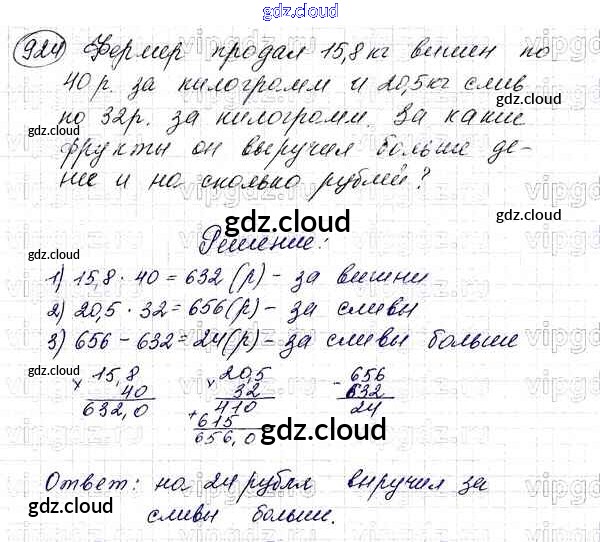 gdz.cloud
924 Фермер продал 15,8 кг вишен по
40 р. за килограмм и 20,5 кг слив
gdz.cloud
по 32 р. за килограмм. За какие
gdz.cloud
фрукты он выручил больше де-
нег и на сколько рублей?
gdz.cloud
gdz.cloud
Решение:
1) 15,8 · 40 = 632 (р) - за вишни
gdz.cloud
2) 20,5 · 32 = 656 (р) - за сливы
3) 656 - 632 = 24 (р) - за сливы больше
gdz.cloud
× 15,8 × 20,5 - 656
40 32 632
632,0 410 24
+ 615
656,0
gdz.cloud
Ответ: на 24 рубля выручил за
gdz.cloud
gdz.cloud
сливы больше.
gdz.cloud